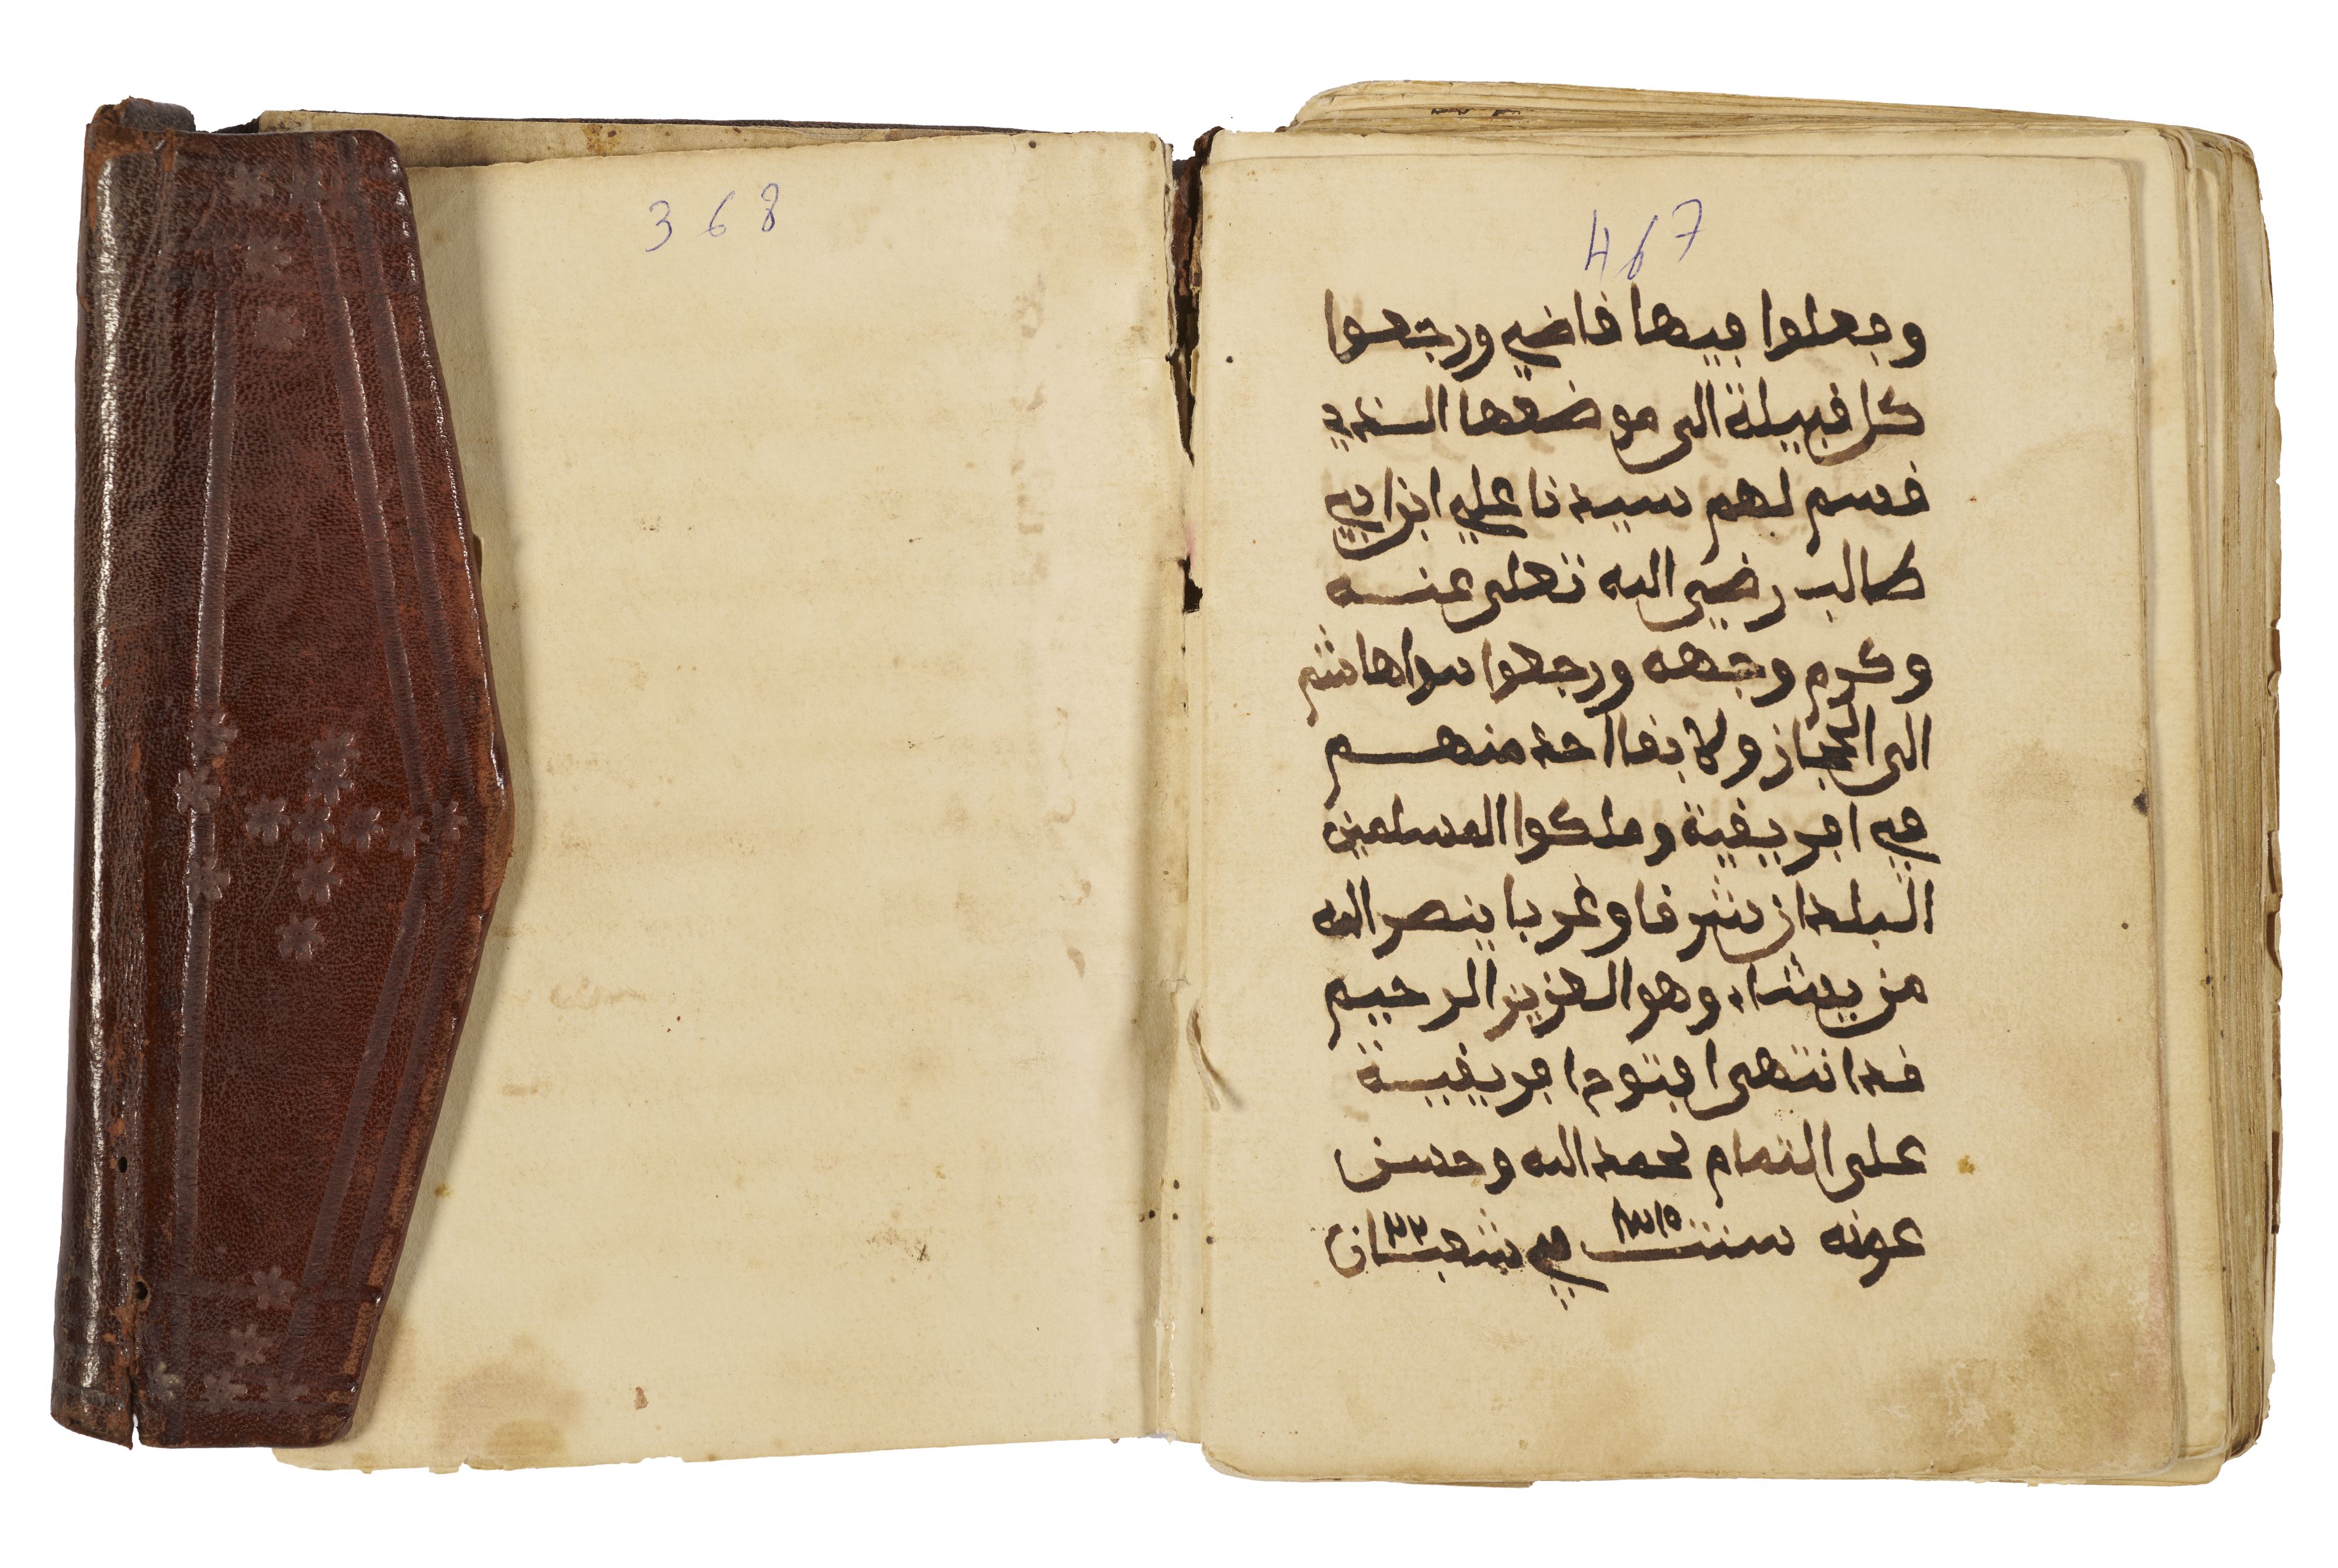 368
467
وجعلوا فيها قاضي ورجعوا
كل قبيلة الى موضعها الذي
قسم لهم سيدنا علي ابن ابي
طالب رضي الله تعلى عنه
وكرم وجهه ورجعوا سواها شم
الى الحجاز ولا بقا احد منهم
في افريقية وملكوا المسلمين
البلدان شرقا وغربا ينصر الله
من يشاء وهو العزيز الرحيم
قد انتهى افتوح افريقية
على التمام بحمد الله وحسن
عونه سنت في شعبان